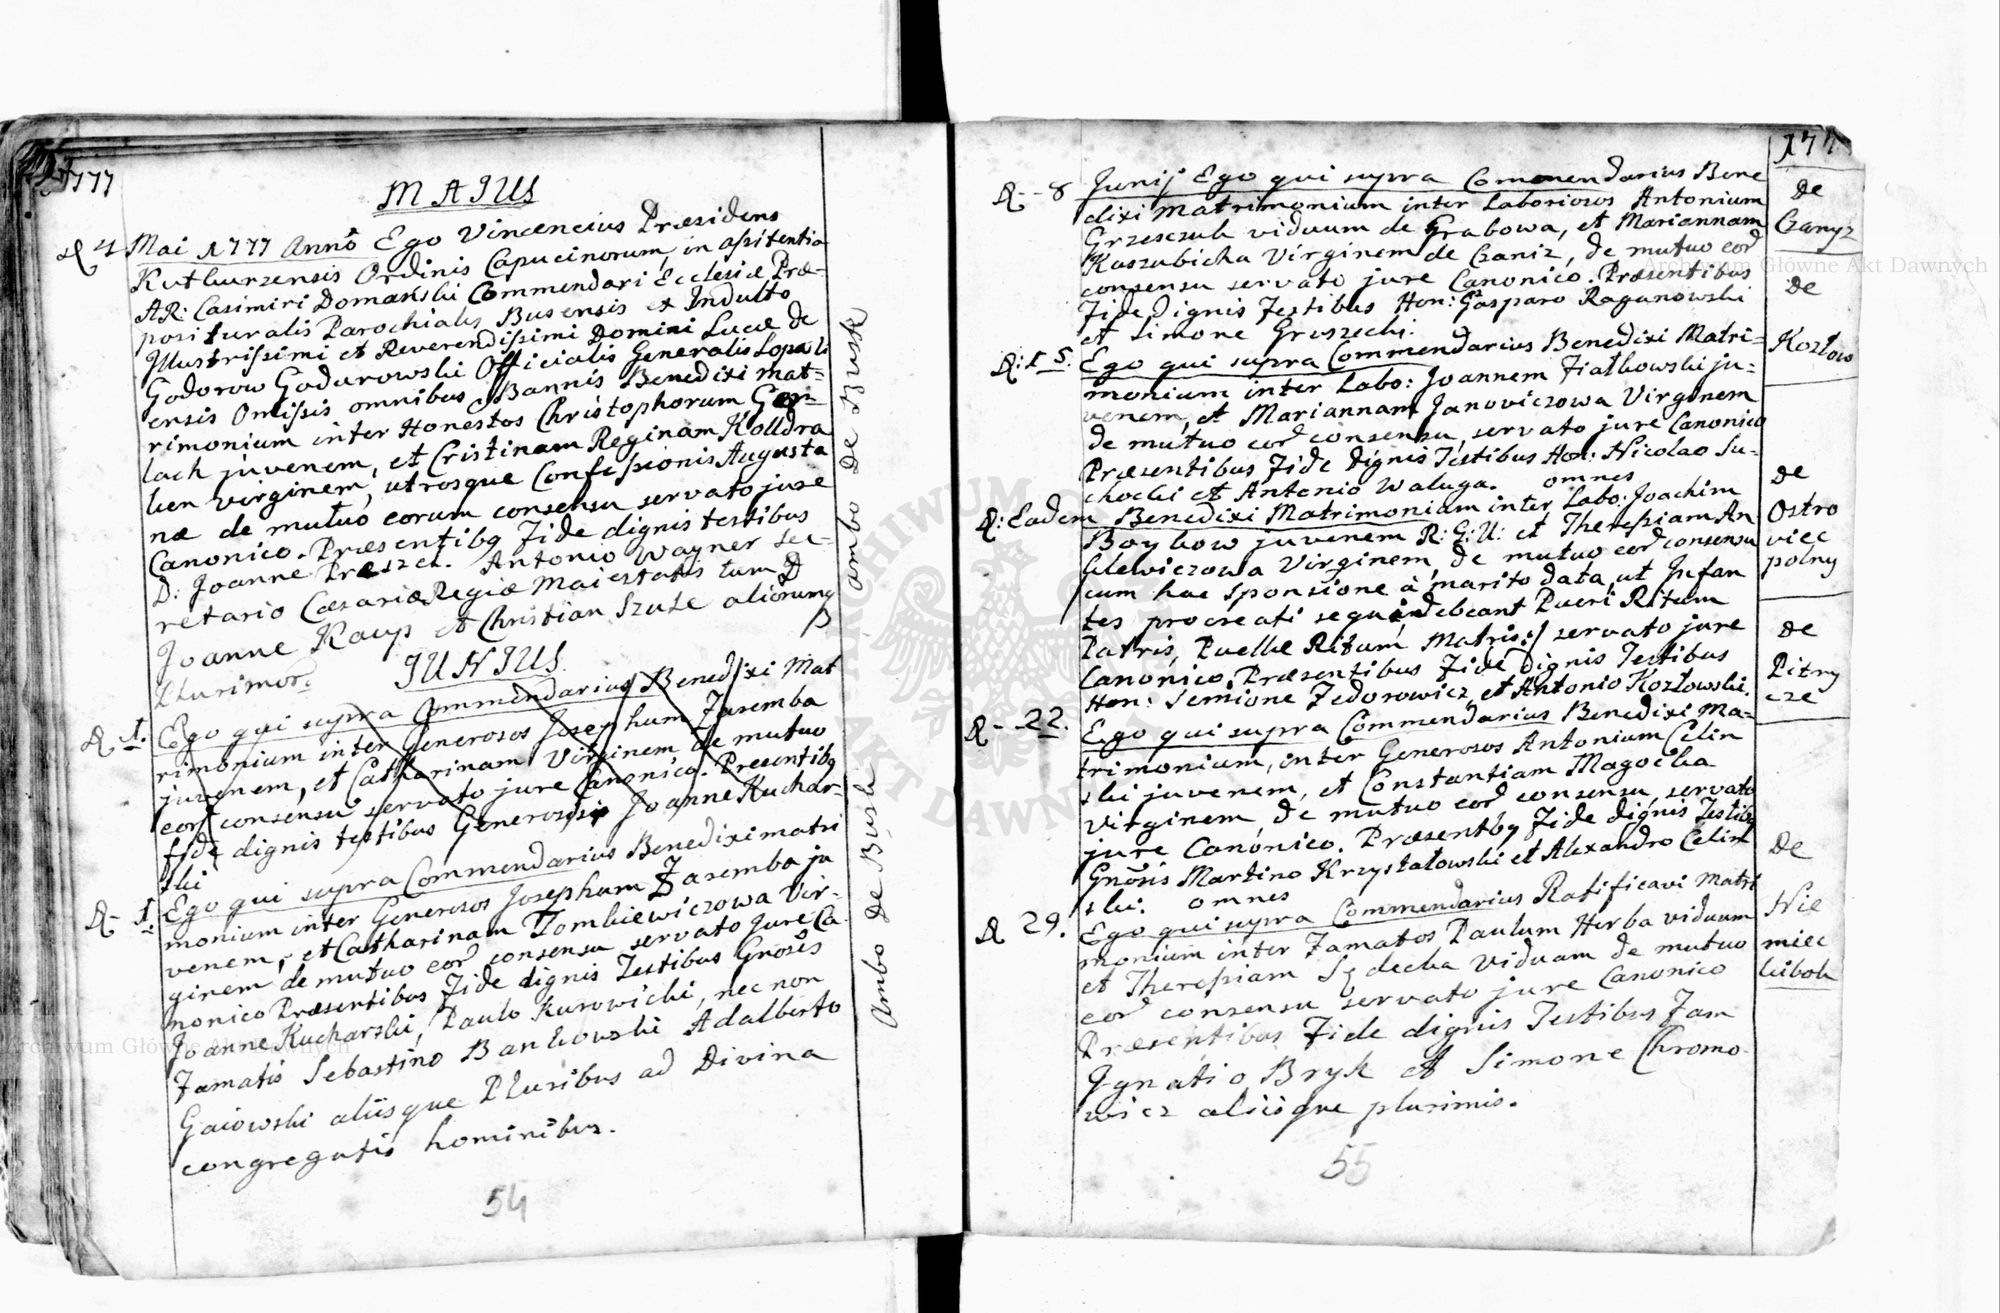 1777
MAIUS
D. 4 Mai 1777 Anno Ego Vincencius Præsidens
Kutkurzensis Ordinis Capucinorum, in assistentia
AR: Casimiri Domański Commendari Ecclesiæ Præ-
posituralis Parochialis Buscensis ex Indulto
Illustrissimi et Reverendissimi Domini Lucæ de
Godorow Godurowski Officialis Generalis Leopoli
ensis Omissis omnibus Bannis Benedixi mat=
rimonium inter Honestos Christophorum Ger-
lach juvenem, et Cristinam Reginam Kolldra
ben virginem, utrosque Confessionis Augusta
næ de mutuo eorum consensu servato jure
Canonico. Præsentibq Fide dignis testibus
D: Joanne Preszel. Antonio Wayner Sec-
retario Cæsariæ Regiæ Maiestatis tum D
Joanne Kaup et Christian Szulz aliorumq
Plurimor:
ambo de Busk
JUNIUS
D 1. Ego qui supra Commendarius Benedixi Mat
rimonium inter Generosos Josephum Zaremba
juvenem, et Catharinam Virginem de mutuo
eor consensu servato jure Canonico. Presentibq
fide dignis testibus Generosis Joanne Kuchar-
ski
D- 1. Ego qui supra Commendarius Benedixi matri
monium inter Generosos Josephum Zaremba ju
venem, et Catharinam Tomkiewiczowa Vir-
ginem de mutuo eor consensu servato Jure Ca-
nonico Præsentibus Fide dignis Testibus Gnosis
Joanne Kucharski, Paulo Kurowicki, nec non
Famatis Sebastino Bankowski Adalberto
Gaiowski aliisque Pluribus ad Divina
congregatis hominibus.
Ambo de Busk
54
1777
D- 8 Junij Ego qui supra Commendarius Bene
dixi matrimonium inter Laboriosos Antonium
Grzesczuk viduum de Grabowa, et Mariannam
Kaszubicka Virginem de Czaniz, de mutuo eor
consensu servato jure Canonico. Præsentibus
Fide Dignis Testibus Hon: Gasparo Raganowski
et Simone Groszecki.
de
Czanyz
D: 15. Ego qui supra Commendarius Benedixi Matri=
monium inter Labo: Joannem Fiałkowski ju=
venem, et Mariannam Janoviczowa Virginem
de mutuo eor consensu, servato jure Canonico
Præsentibus Fide Dignis Testibus Hon: Nicolao Su-
chocki et Antonio Waluga. omnes
de
Kozłow
D: Eadem Benedixi Matrimonium inter Labo: Joachim
Boykow juvenem R: G: U: et Theressiam An
Virginem, de mutuo eor consensu
cum hac Sponsione à marito data, ut Infan
tes procreati sequi debeant Pueri Ritum
Patris, Puellæ Ritum Matris:/ servato jure
Canonico. Præsentibus Fide dignis Testibus
Hon: Semione Fedorowicz, et Antonio Kozłowski.
de
Ostro
viec
polny
D- 22. Ego qui supra Commendarius Benedixi Ma=
trimonium, inter Generosos Antonium Celin
ski juvenem, et Constantiam Magocka
Virginem, de mutuo eor consensu, servato
jure Canonico. Præsentbq Fide dignis Testibq
Gnosis Martino Krzystałowski et Alexandro Celin
ski. omnes
de
Pitny
cze
D 29. Ego qui supra Commendarius Ratificavi Matri
monium inter Famatos Paulum Herba viduum
et Theressiam Sędecka Viduam de mutuo
eor consensu servato jure Canonico
Præsentibus Fide dignis Testibus Fam
Ignatio Bryk et Simone Chromo-
wicz aliisque plurimis.
De
Nie
miec
kibok
55
ARCHIWUM GŁÓWNE AKT DAWNYCH
Archiwum Główne Akt Dawnych
Archiwum Główne Akt Dawnych